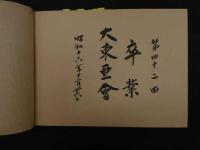 第四十二回
卒業
大東亜會
昭和十六年十二月廿六日